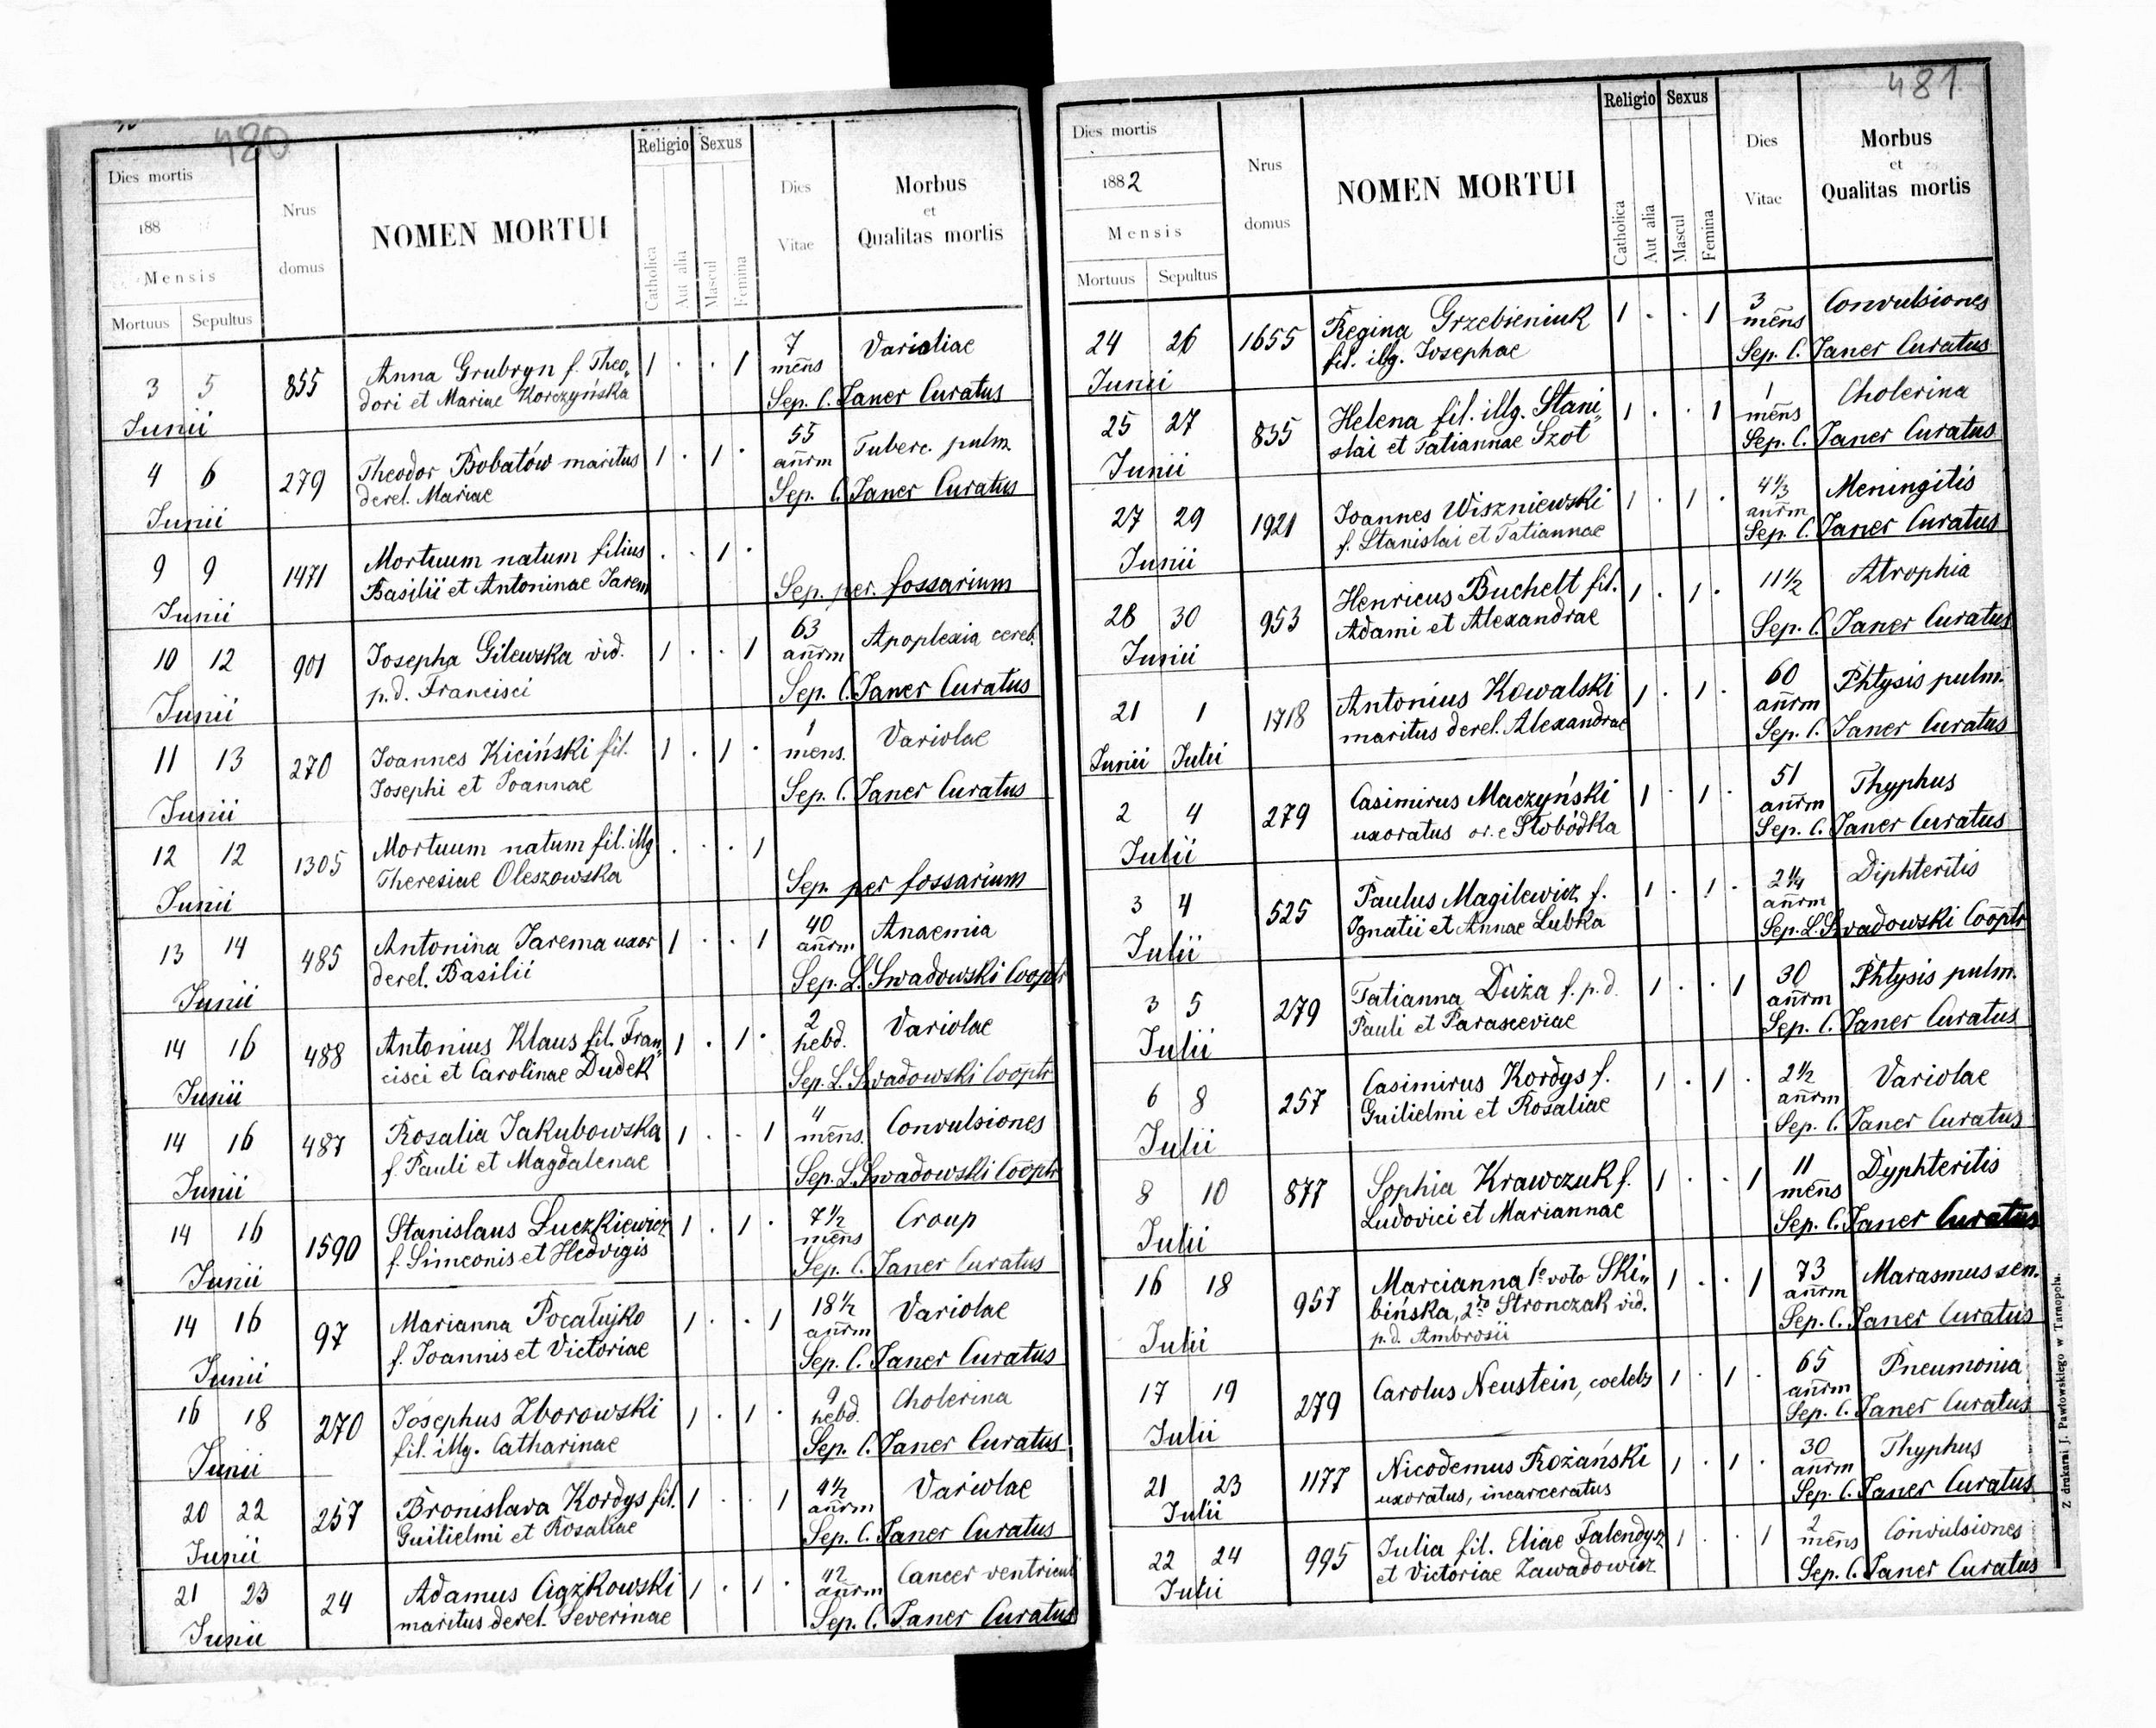 480
Dies mortis
188
Mensis
Mortuus Sepultus
Nrus domus
NOMEN MORTUI
Religio
Catholica
Aut alia
Sexus
Mascul
Femina
Dies Vitae
Morbus
et
Qualitas mortis
3 5 855 Anna Grubryn f. Theo„ 1 . . 1 7 Varioliae
Junii dori et Mariae Korczyńska mens Sep. C. Janer Curatus
4 6 279 Theodor Bobatów maritus 1 . 1 . 55 Tuberc. pulm.
Junii derel. Mariae annrm Sep. C. Janer Curatus
9 9 1471 Mortuum natum filius . . 1 .
Junii Basilii et Antoninae Jarem Sep. per. fossarium
10 12 901 Josepha Gilewska vid. 1 . . 1 63 Apoplexia cereb.
Junii p.d. Francisci annrm Sep. C. Janer Curatus
11 13 270 Joannes Kiciński fil. 1 . 1 . 1 Variolae
Junii Josephi et Joannae mens. Sep. C. Janer Curatus
12 12 1305 Mortuum natum fil. illg . . . 1
Junii Theresiae Oleszowska Sep. per fossarium
13 14 485 Antonina Jarema uxor 1 . . 1 40 Anaemia
Junii derel. Basilii annrm Sep. L. Swadowski Cooptr
14 16 488 Antonius Klaus fil. Fran„ 1 . 1 . 2 Variolae
Junii cisci et Carolinae Dudek hebd. Sep. L. Swadowski Cooptr
14 16 487 Rosalia Jakubowska 1 . . 1 4 Convulsiones
Junii f. Pauli et Magdalenae mens. Sep. L. Swadowski Cooptr
14 16 1590 Stanislaus Łuczkiewicz 1 . 1 . 7½ Croup
Junii f. Simeonis et Hedvigis mens Sep. C. Janer Curatus
14 16 97 Marianna Pocałujko 1 . . 1 18½ Variolae
Junii f. Joannis et Victoriae annrm Sep. C. Janer Curatus
16 18 270 Josephus Zborowski 1 . 1 . 9 Cholerina
Junii fil. illg. Catharinae hebd. Sep. C. Janer Curatus
20 22 257 Bronislava Kordys fil. 1 . . 1 4½ Variolae
Junii Guilielmi et Rosaliae annrm Sep. C. Janer Curatus
21 23 24 Adamus Ciążkowski 1 . 1 . 42 Cancer ventricul
Junii maritus derel. Severinae annrm Sep. C. Janer Curatus
481
Dies mortis
1882
Mensis
Mortuus Sepultus
Nrus domus
NOMEN MORTUI
Religio
Catholica
Aut alia
Sexus
Mascul
Femina
Dies Vitae
Morbus
et
Qualitas mortis
24 26 1655 Regina Grzebieniuk 1 . . 1 3 Convulsiones
Junii fil. illg. Josephae mens Sep. C. Janer Curatus
25 27 835 Helena fil. illg. Stani„ 1 . . 1 1 Cholerina
Junii slai et Tatiannae Szot mens Sep. C. Janer Curatus
27 29 1921 Joannes Wiszniewski 1 . 1 . 4⅓ Meningitis
Junii f. Stanislai et Tatiannae annrm Sep. C. Janer Curatus
28 30 953 Henricus Buchelt fil. 1 . 1 . 11½ Atrophia
Junii Adami et Alexandrae Sep. C. Janer Curatus
21 1 1718 Antonius Kowalski 1 . 1 . 60 Phtysis pulm.
Junii Julii maritus derel. Alexandrae annrm Sep. C. Janer Curatus
2 4 279 Casimirus Maczyński 1 . 1 . 51 Thyphus
Julii uxoratus or. e Słobódka annrm Sep. C. Janer Curatus
3 4 525 Paulus Magilewicz f. 1 . 1 . 2¼ Diphteritis
Julii Ignatii et Annae Lubka annrm Sep. L. Swadowski Cooptr
3 5 279 Tatianna Duża f. p.d. 1 . . 1 30 Phtysis pulm.
Julii Pauli et Parasceviae annrm Sep. C. Janer Curatus
6 8 257 Casimirus Kordys f. 1 . 1 . 2½ Variolae
Julii Guilielmi et Rosaliae annrm Sep. C. Janer Curatus
8 10 877 Sophia Krawczuk f. 1 . . 1 11 Dyphteritis
Julii Ludovici et Mariannae mens Sep. C. Janer Curatus
16 18 957 Marcianna 1º voto Ski„ 1 . . 1 73 Marasmus sen.
Julii bińska, 2do Stronczak vid. annrm Sep. C. Janer Curatus
p.d. Ambrosii
17 19 279 Carolus Neustein, coelebs 1 . 1 . 65 Pneumonia
Julii annrm Sep. C. Janer Curatus
21 23 1177 Nicodemus Rożański 1 . 1 . 30 Thyphus
Julii uxoratus, incarceratus annrm Sep. C. Janer Curatus
22 24 995 Julia fil. Eliae Falendysz 1 . . 1 2 Convulsiones
Julii et Victoriae Zawadowicz mens Sep. C. Janer Curatus
Z drukarni J. Pawłowskiego w Tarnopolu.